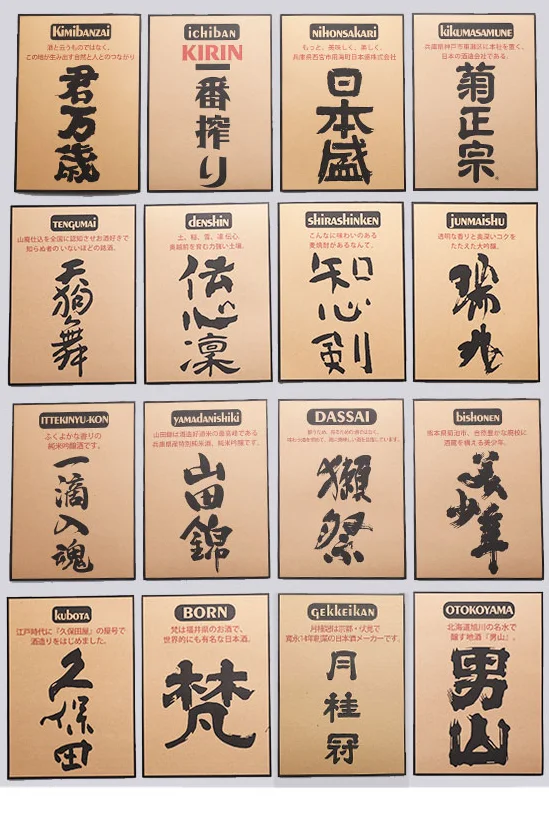 Kimibanzai
酒と云うものではなく、
この地が生み出す自然と人とのつながり
君万歳
ichiban
KIRIN
一番搾り
NIHONSAKARI
もっと、美味しく、楽しく、
兵庫県西宮市用海町日本盛株式会社
日本盛
KIKUMASAMUNE
兵庫県神戸市東灘区に本社を置く、
日本の酒造会社である。
菊正宗
TENGUMAI
山廃仕込を全国に認知させお酒好きで
知らぬ者の いないほどの銘酒。
天狗舞
denshin
土、稲、雪、凛 伝心、
奥越前を育む力強い土壌。
伝心凛
SHIRASHINKEN
こんなに味わいのある
麦焼酎があるなんて。
知心剣
JUNMAISHU
透明な香りと奥深いコクを
たたえた大吟醸。
瑞兆
ITTEKINYU-KON
ふくよかな香りの
純米吟醸酒です。
一滴入魂
YAMADANISHIKI
山田錦は酒造好適米の最高峰である
兵庫県産特別純米酒、純米吟醸酒です。
山田錦
DASSAI
獺祭
bishonen
熊本県菊池市、自然豊かな廃校に
酒蔵を構える美少年。
美少年
KUBOTA
江戸時代に『久保田屋』の屋号で
酒造りをはじめました。
久保田
BORN
梵は福井県のお酒で、
世界的にも有名な日本酒。
梵
GEKKEIKAN
月桂冠は京都・伏見で
寛永14年創業の日本酒メーカーです。
月桂冠
OTOKOYAMA
北海道旭川の名水で
醸す地酒『男山』。
男山